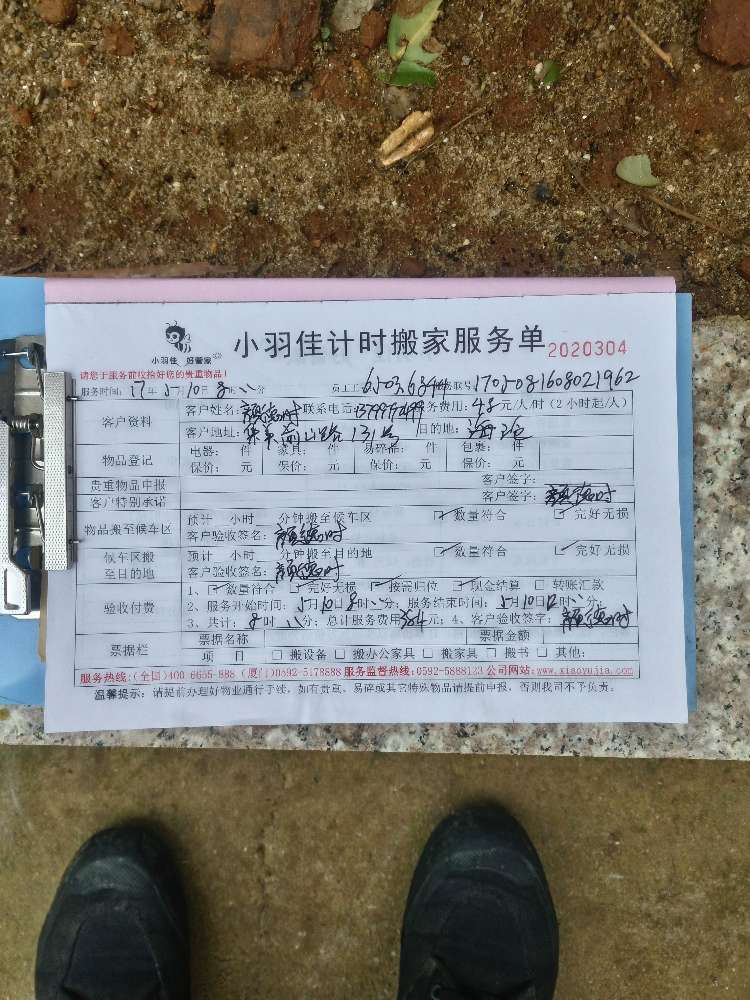 小羽佳 好管家
小羽佳计时搬家服务单
2020304
请您于服务前收拾好您的贵重物品!
服务时间: 17年 5月10日 8时 分 员工工 务联号 1705081608021962
客户资料
客户姓名: 颜德时 联系电话: 服务费用: 48元/人/时(2小时起/人)
客户地址: 山路131号 目的地:
物品登记
电器: 件 家具: 件 易碎品: 件 包裹: 件
保价: 元 保价: 元 保价: 元 保价: 元
贵重物品申报
客户签字:
客户特别承诺
客户签字: 颜德时
物品搬至候车区
预计 小时 分钟搬至候车区 ☑数量符合 ☑完好无损
客户验收签名: 颜德时
候车区搬至目的地
预计 小时 分钟搬至目的地 ☑数量符合 ☑完好无损
客户验收签名: 颜德时
验收付费
1、☑数量符合 ☑完好无损 ☑按需归位 ☑现金结算 ☐转账汇款
2、服务开始时间: 5月10日8时 分; 服务结束时间: 5月10日12时 分;
3、共计: 8时 分; 总计服务费用384元; 4、客户验收签字: 颜德时
票据栏
票据名称 票据金额
项 目 ☐搬设备 ☐搬办公家具 ☐搬家具 ☐搬书 ☐其他:
服务热线:(全国)400-6655-888 (厦门)0592-5178888 服务监督热线:0592-5888123 公司网站:www.xiaoyujia.com
温馨提示: 请提前办理好物业通行手续,如有贵重、易碎或其它特殊物品请提前申报,否则我司不予负责。